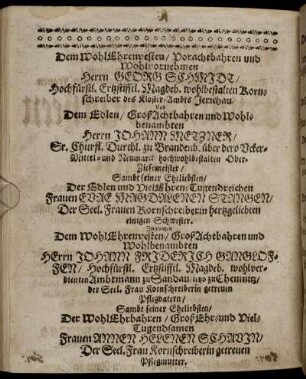 Dem WohlEhrenvesten/ Vorachtbahren und
Wohlvornehmen
Herrn GEORG SCHMIDT/
Hochfürstl. Ertzstifftl. Magdeb. wohlbestalten Korn-
schreiber des Kloster-Ambts Jerichau
Und
Dem Edlen/ GroßAchtbahren und Wohl-
benambten
Herrn JOHANN METZNER/
Sr. Churfl. Durchl. zu Brandenb. über dero Ucker-
Mittel- und Neumarck hochwohlbestalten Ober-
Ziesemeister/
Sambt seiner Eheliebsten/
Der Edlen und VielEhren-Tugendreichen
Frauen EVAE MAGDALENEN STANGEN/
Der Seel. Frauen Kornschreiberin hertzgeliebten
einigen Schwester.
Dem WohlEhrenvesten/ GroßAchtbahren und
Wohlbenambten
Herrn JOHANN FRIDERICH GANGLOF-
FEN/ Hochfürstl. Ertzstifftl. Magdeb. wohlver-
dienten Ambtmann zu Sandau/ itzo zu Chemnitz/
der Seel. Frau Kornschreiberin getreuen
Pflegvatern/
Sambt seiner Eheliebsten/
Der WohlEhrbahren/ GroßEhr- und Viel-
Tugendsamen
Frauen ANNEN HELENEN SCHAVIN/
Der Seel. Frau Kornschreiberin getreuen
Pflegmutter.